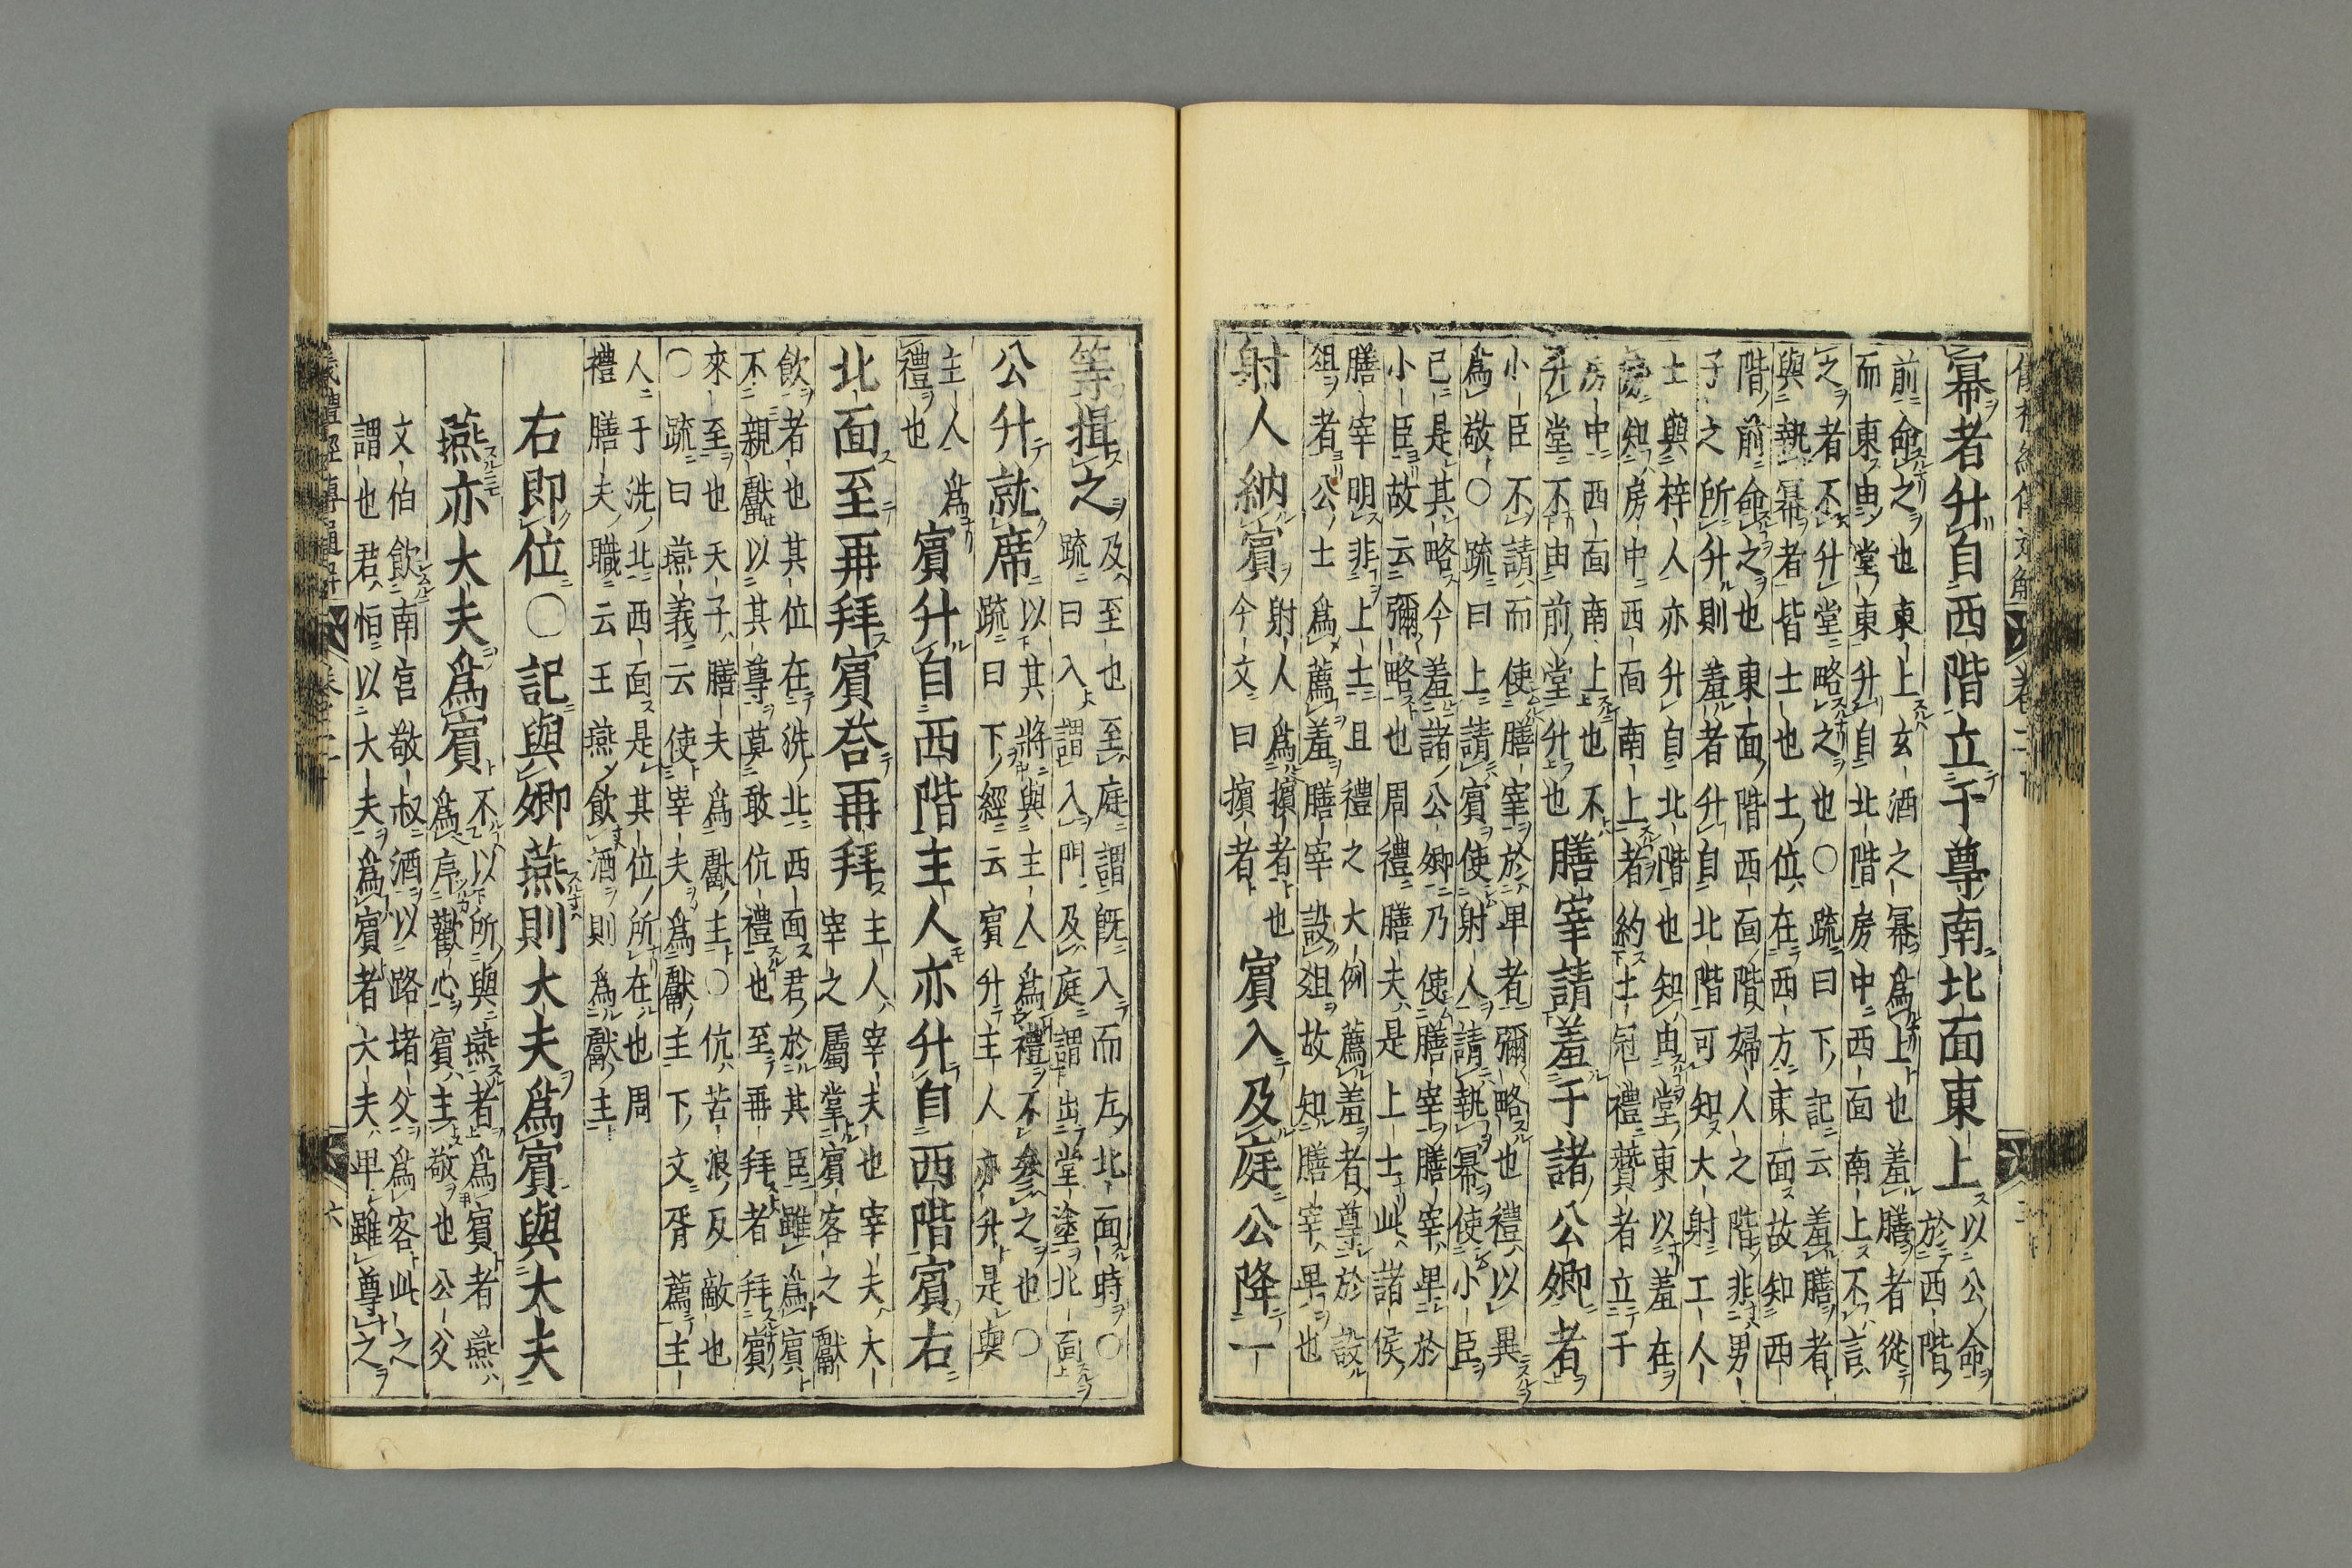 冪者升自西階立于尊南北面東上
以公命
於西階
前命之也東上玄酒之冪爲上也羞膳者從
而東由堂東升自北階房中西面南上不言
之者不升堂略之也○疏曰下記云羞膳者
與執冪者皆士也士位在西方東面故知西
階前命之也東面階西面階婦人之階非男
子之所升則羞者升自北階可知大射工人
士與梓人亦升自北階也知由堂東以羞在
房知房中西面南上者約士冠禮贊者立于
房中西面南上也不
升堂不由前堂升也
膳宰請羞于諸公卿者
小臣不請而使膳宰於卑者彌略也禮以異
爲敬○疏曰上請賓使射人請執冪使小臣
己是其略今羞諸公卿乃使膳宰膳宰卑於
小臣故云彌略也周禮膳夫是上士此諸侯
膳宰明非上士且禮之大例薦羞者尊於設
俎者公士爲薦羞膳宰設俎故知膳宰卑也
射人納賓
射人爲擯者也
今文曰擯者
賓入及庭公降一
等揖之
及至也至庭謂旣入而左北面時○
疏曰入謂入門及庭謂出堂塗北面
公升就席
以其將與主人爲禮不參之也○
疏曰下經云賓升主人亦升是與
主人爲
禮也
賓升自西階主人亦升自西階賓右
北面至再拜賓荅再拜
主人宰夫也宰夫大
宰之屬掌賓客之獻
飲者也其位在洗北西面君於其臣雖爲賓
不親獻以其尊莫敢伉禮也至再拜者拜賓
來至也天子膳夫爲獻主○伉苦浪反敵也
○疏曰燕義云使宰夫爲獻主下文胥薦主
人于洗北西面是其位所在也周
禮膳夫職云王燕飲酒則爲獻主
右即位○記與卿燕則大夫爲賓與大夫
燕亦大夫爲賓
不以所與燕者爲賓者燕
爲序歡心賓主敬也公父
文伯飲南宮敬叔酒以路堵父爲客此之
謂也君恒以大夫爲賓者大夫卑雖尊之
六